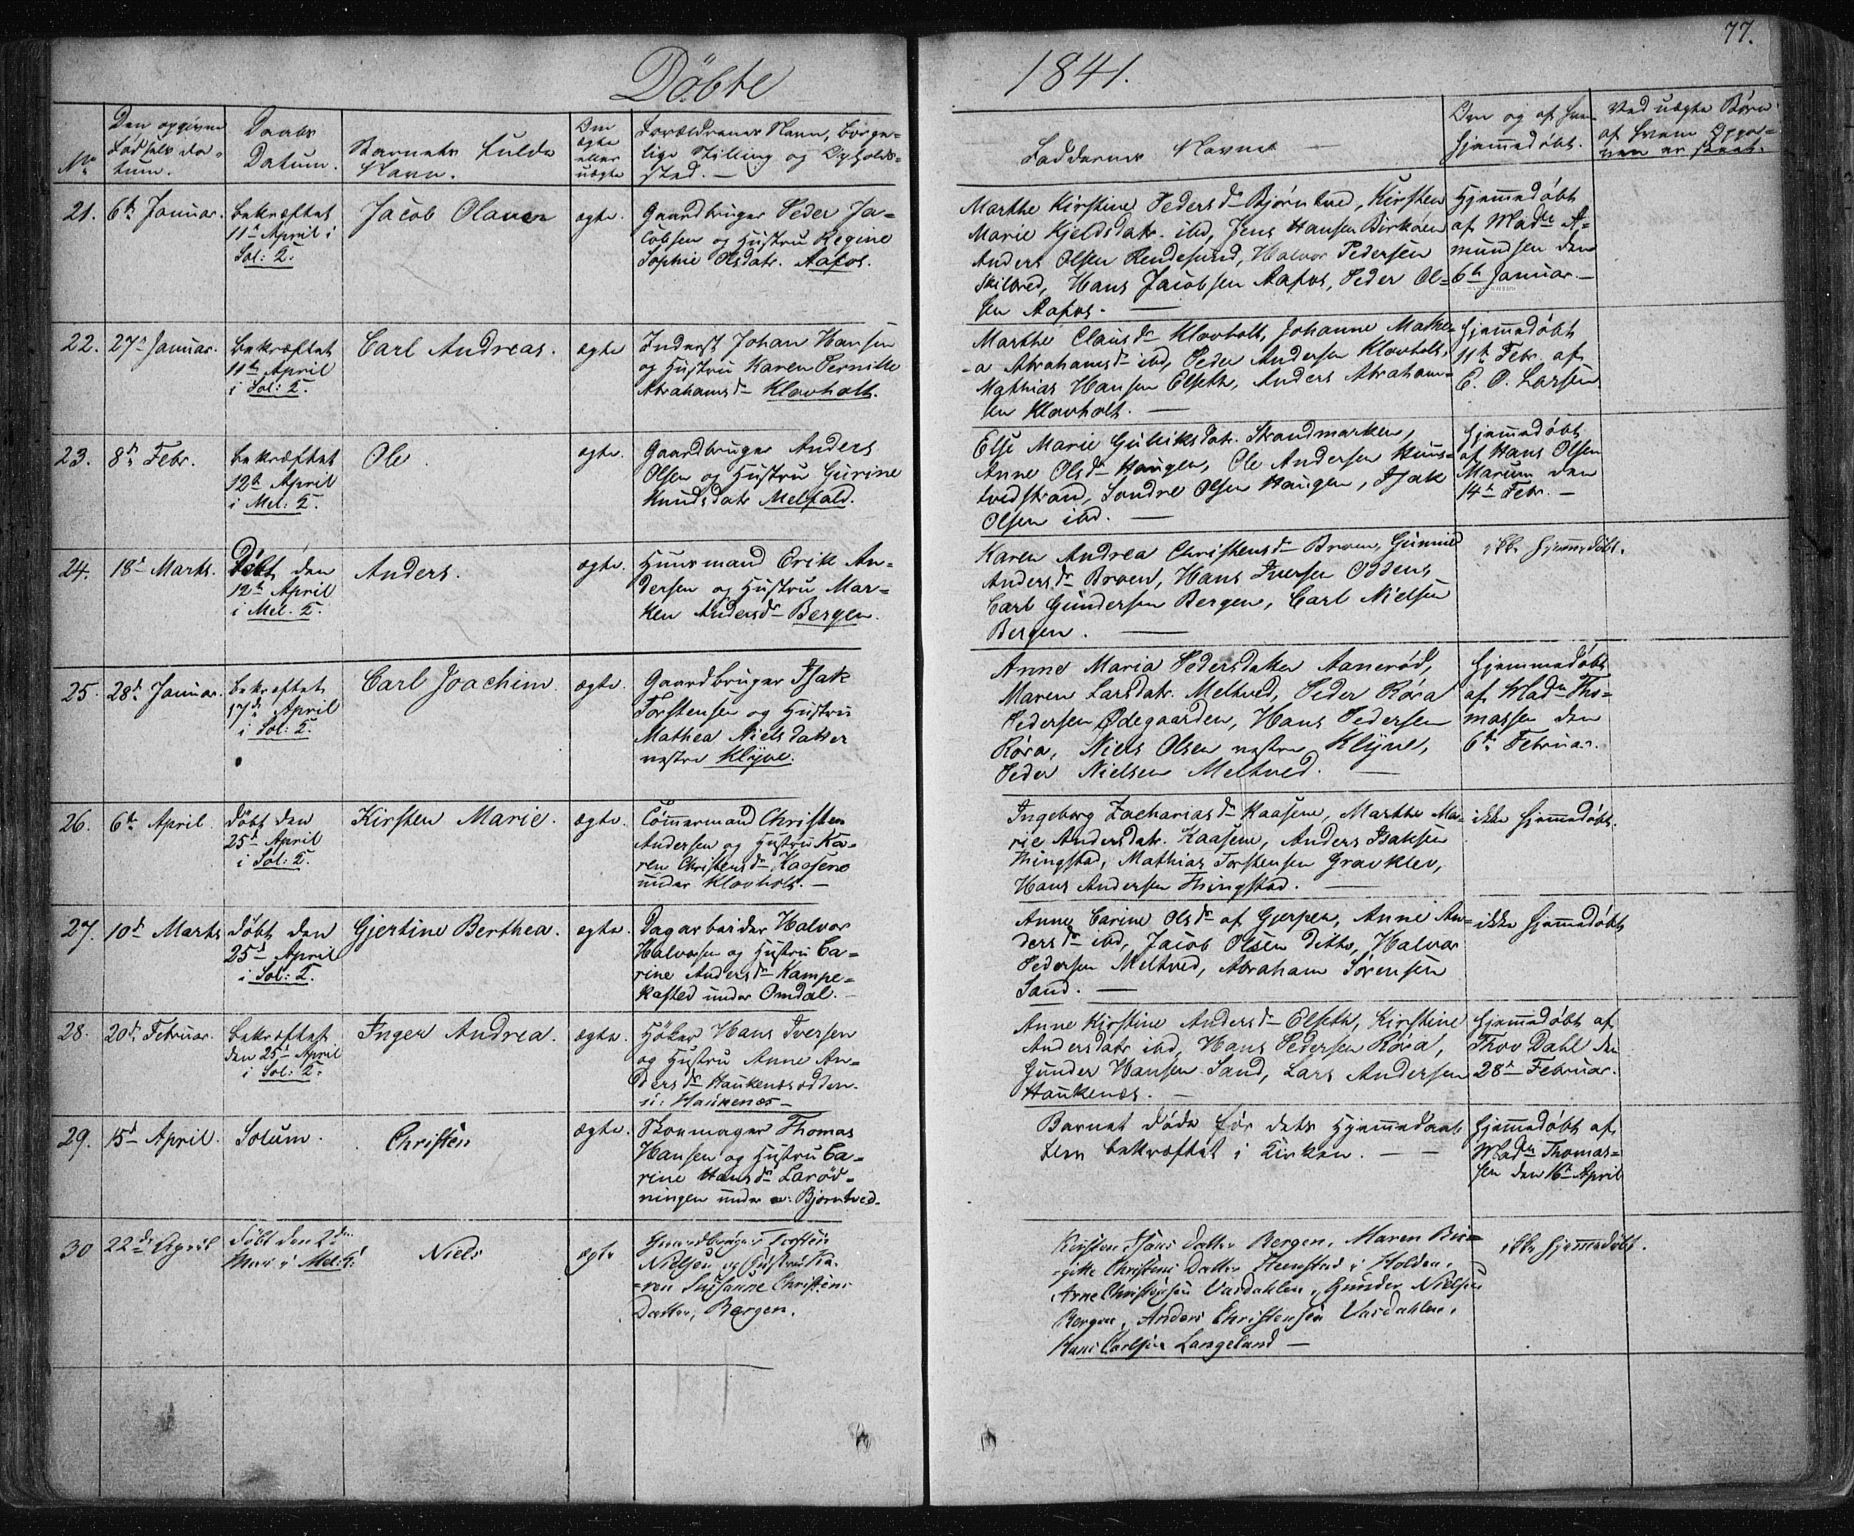 77.
Döbte 1841.
No
Den opgivne
Födsels da-
tum.
Daabs
Datum.
Barnets fulde
Navn.
Om
ægte
eller
uægte
Forældrenes Navn, borger-
lige Stilling og Opholds-
sted. —
Faddernes Navne —
Om og af hvem
hjemmedöbt.
Ved uægte Börn
af hvem Opgi-
ven er skeet.
21. 6te Januar.
bekræftet
11te April i
Sol: K.
Jacob Olaves
ægte.
Gaardbruger Peder Ja-
cobsen og Hustru Regine
Sophie Olsdatr. Aafos.
Marthe Kirstine Pedersdr Bjørntvedt, Kirsten
Marie Kjeldsdatr. ibd, Jens Hansen Birkoen
Anders Olsen Rendesund, Halvor Pedersen
Skilbred, Hans Jacobsen Aafos, Peder Ol-
sen Aafos. —
Hjemmedöbt
af Made A-
mundsen den
6te Januar. —
22. 27de Januar.
bekræftet
11te April
i Sol: K.
Carl Andreas.
ægte
Inderst Johan Hansen
og Hustru Karen Pernille
Abrahamsdr Klovholt.
Marthe Clausdr Klovholt, Johanne Mathe-
a Abrahamsdr ibd, Peder Andersen Klovholt,
Mathias Hansen Elseth, Anders Abraham-
sen Klovholt. —
hjemmedöbt
11te Febr. af
C. O. Larsen
23. 8de Febr.
bekræftet
12te April
i Mel: K.
Ole
ægte.
Gaardbruger Anders
Olsen og Hustru Gurine
Knudsdatr Melfald.
Else Marie Gulliksdatr. Strandmarken,
Anne Olsdr Haugen, Ole Andersen
Sondre Olsen Haugen, Isak
Olsen ibd. —
hjemmedöbt
af Hans Olsen
Marum den
14te Febr. —
24. 18de Marts.
Döbt den
12te April
i Mel. K.
Anders.
ægte.
Huusmand Erik An-
dersen og Hustru Mar-
ken Andersdr Bergen.
Karen Andrea Christensdr Broen, Gunnild
Andersdr Broen, Hans Iversen Odden,
Carl Gundersen Bergen, Carl Nielsen
Bergen. —
ikke hjemmedöbt.
25. 28de Januar.
bekræftet
17de April
i Sol: K.
Carl Joachim
ægte.
Gaardbruger Isak
Torstensen og Hustru
Mathea Nielsdatter
nestre Klyve.
Anne Maria Pedersdatter Aanerød,
Maren Larsdatr. Meltved, Peder Röra
Pedersen Ødegaarden, Hans Pedersen
Röra, Niels Olsen nestre Klyve,
Peder Nielsen Meltved. —
hjemmedöbt
af Made Tho-
massen den
6te Februar.
26. 6te April
döbt den
25de April
i Sol: K.
Kirsten Marie.
ægte.
Tömmermand Christen
Andersen og Hustru Ka-
ren Christensdr Kaasene
under Klovholt. —
Ingeborg Zachariasdr Kaasene, Marthe Ma-
rie Andersdatr. Kaasene, Anders Isaksen
Thingstad, Mathias Torstensen Gravklev,
Hans Andersen Thingstad. —
ikke hjemmedöbt.
27. 10de Marts
döbt den
25de April
i Sol: K.
Gjertine Berthea.
ægte.
Dagarbeider Halvor
Halvorsen og Hustru Ca-
rine Andersdr Kampe-
kasted under Omdal. —
Anne Carine Olsdr af Gjerpen, Anne An-
dersdr ibd, Jacob Olsen ditto, Halvor
Pedersen Meltved, Abraham Sörensen
Sand. —
ikke hjemmedöbt
28. 20de Februar.
bekræftet
den 25de April
i Sol: K.
Inger Andrea.
ægte.
Höker Hans Iversen
og Hustru Anne An-
dersdr Haukenæsodden
u: Haukenæs —
Anne Kirstine Andersdr Elseth, Kirstine
Andersdatr ibd, Hans Pedersen Röra,
Gunder Hansen Sand, Lars Andersen
Haukenæs. —
hjemmedöbt af
Thov Dahl den
28de Februar.
29. 15de April.
Solum.
Christen
ægte.
Skomager Thomas
Hansen og Hustru Ca-
rine Hansdr Laröd-
ningen under Bjørntved.
Barnet döde för dets Hjemmedaab
blev bekræftet i Kirken. — —
hjemmedöbt af
Made Thomas-
sen den 16de April
30 22de April
Döbt den 2den
Mai i Mel: K:
Niels
ægte
Gaardbruger Torsten
Nielsen og Hustru Ka-
ren Susanne Christens
Datter, Bergen.
Kirsten Hans Datter Bergen, Maren Bir-
gitte Christens Datter Heimstad i Holden,
Arne Christensen Vardahlen, Gunder Nielsen
Bergen, Anders Christensen Vardahlen,
Hans Carlsen Langeland —
ikke hjemmedöbt.